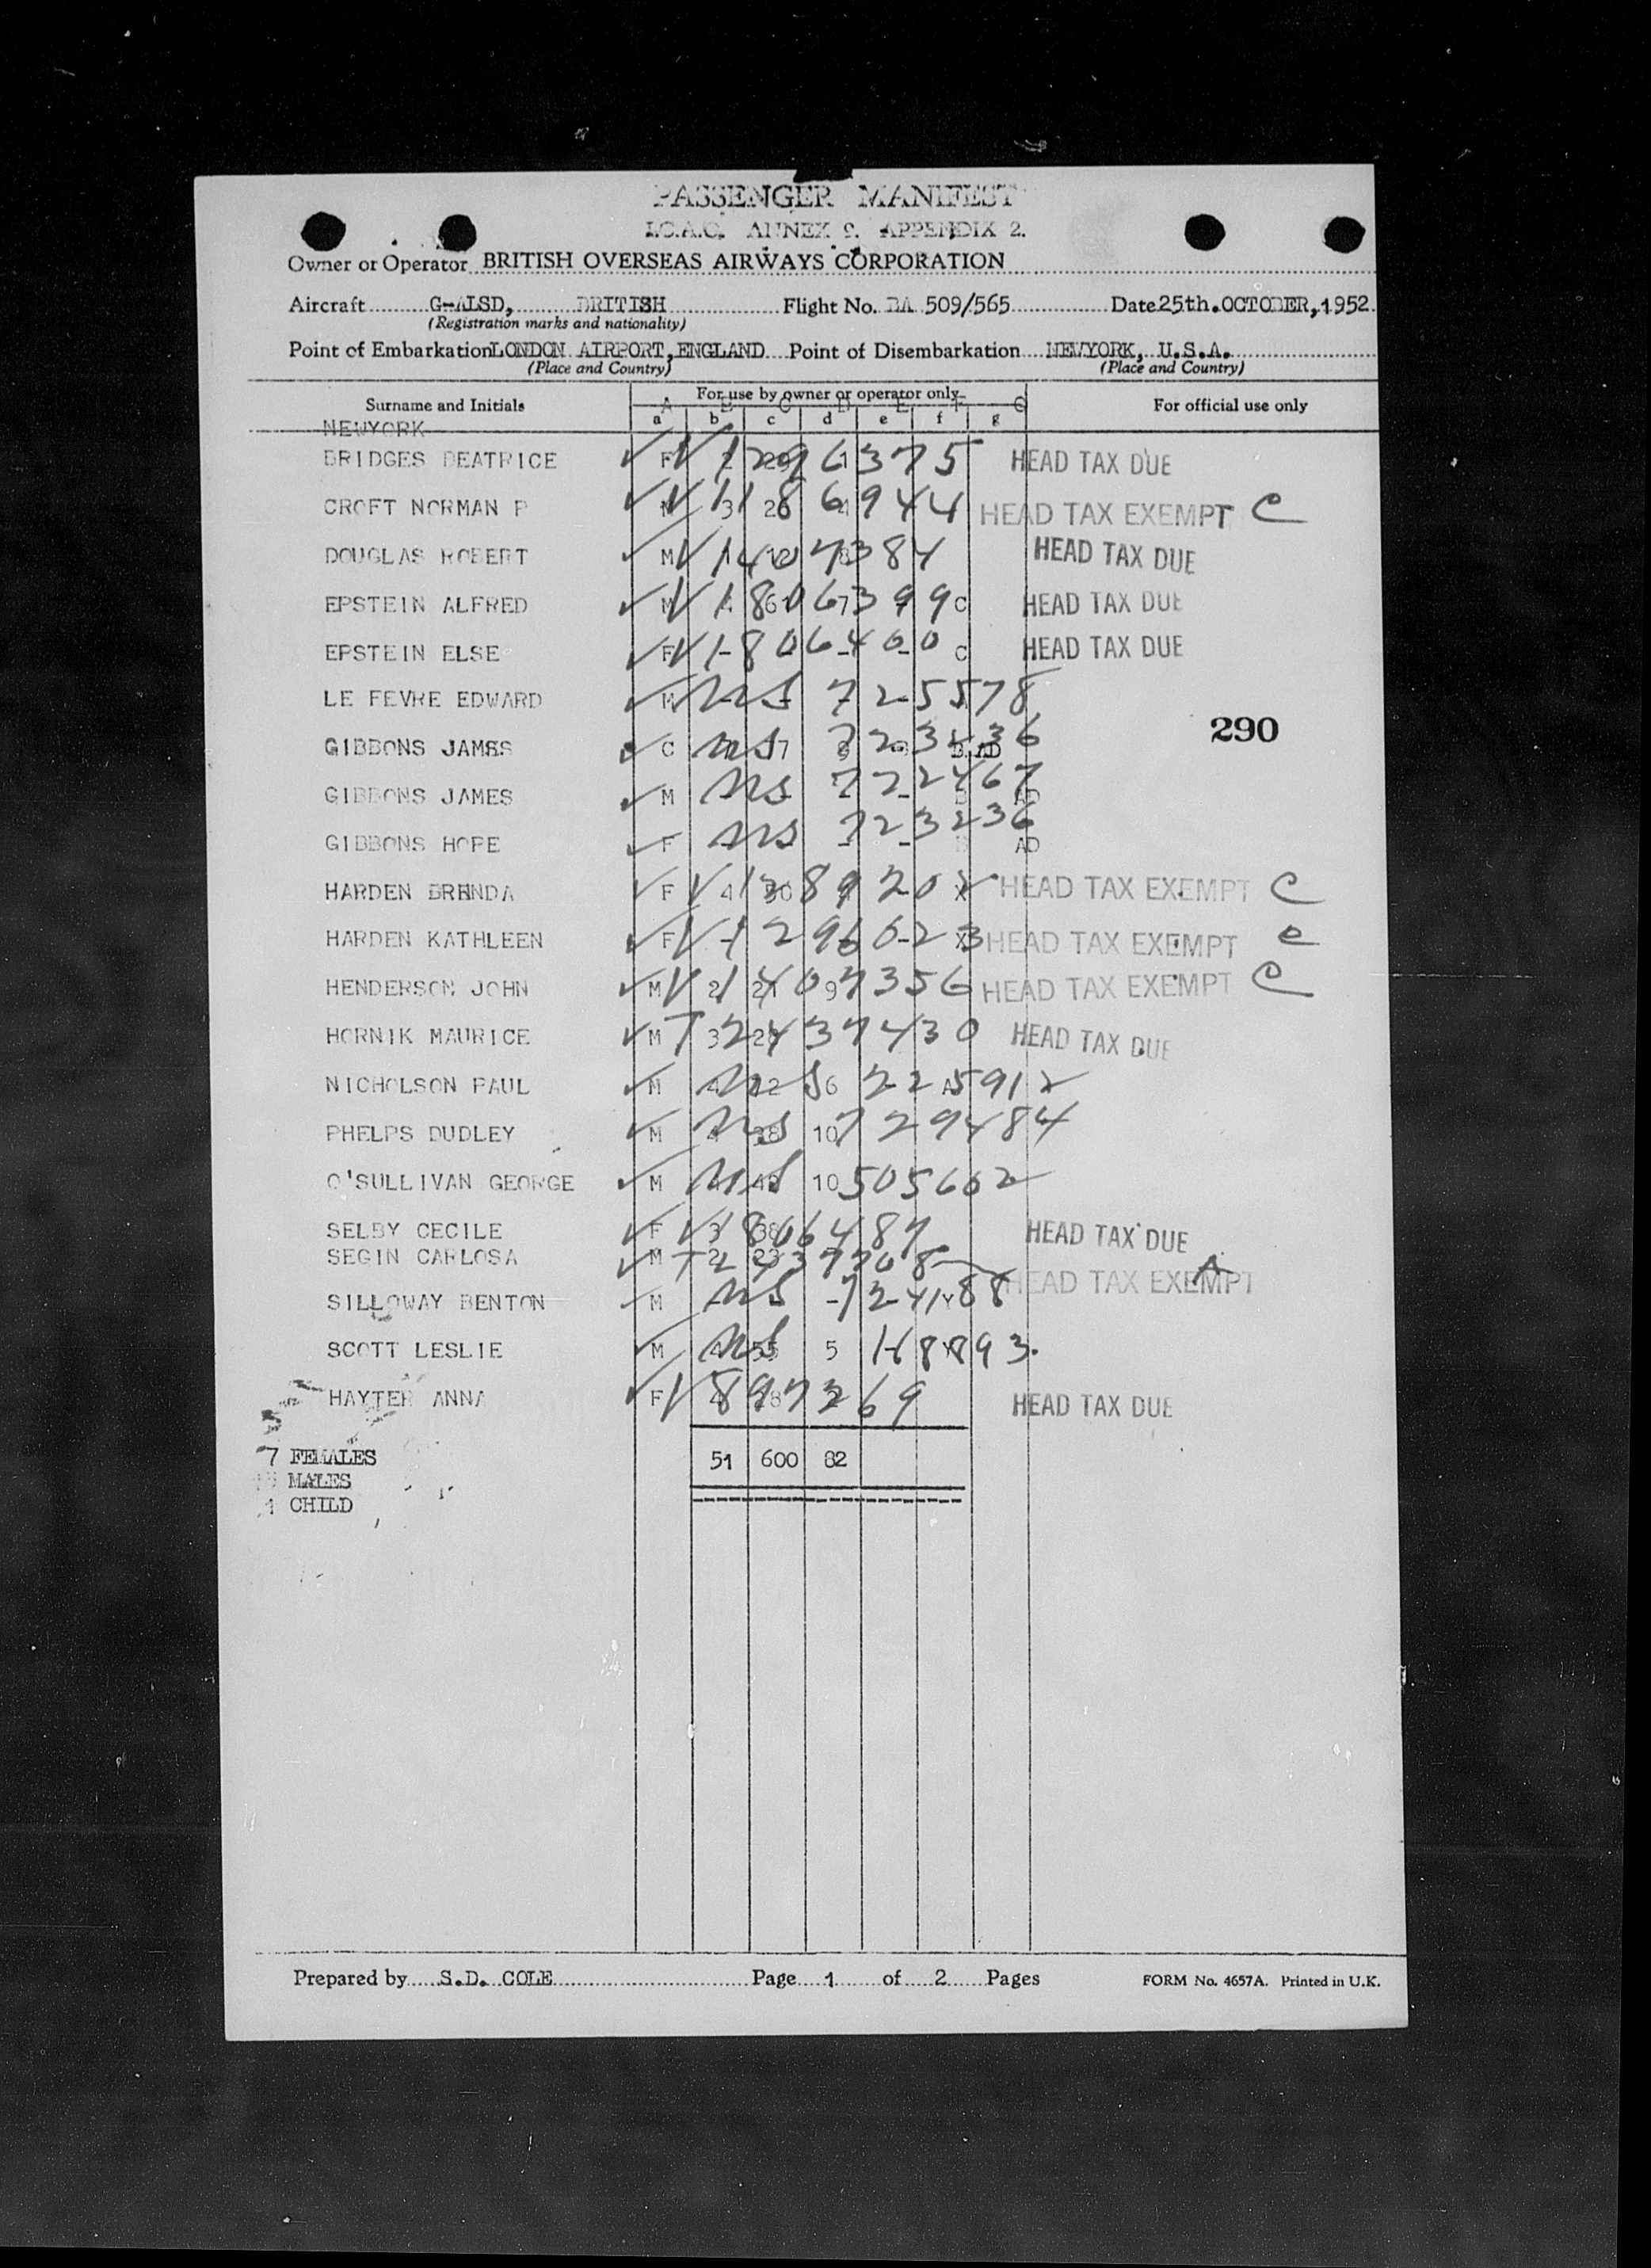 PASSENGER MANIFEST
I.C.A.O. ANNEX 9. APPENDIX 2.
Owner or Operator BRITISH OVERSEAS AIRWAYS CORPORATION
Aircraft G-ALSD, BRITISH Flight No. BA 509/565 Date 25th.OCTOBER,1952
(Registration marks and nationality)
Point of Embarkation LONDON AIRPORT,ENGLAND Point of Disembarkation NEWYORK, U.S.A.
(Place and Country) (Place and Country)
Surname and Initials For use by owner or operator only For official use only
A B C D E F G
a b c d e f g
NEWYORK
BRIDGES BEATRICE F V 1296375 HEAD TAX DUE
CROFT NORMAN P M V 1186944 HEAD TAX EXEMPT C
DOUGLAS ROBERT M V 1407384 HEAD TAX DUE
EPSTEIN ALFRED M V 1806399 C HEAD TAX DUE
EPSTEIN ELSE F V 1806400 C HEAD TAX DUE
LE FEVRE EDWARD M US 725578
GIBBONS JAMES C US 723236 AD
290
GIBBONS JAMES M US 722467 AD
GIBBONS HOPE F US 723236 AD
HARDEN BRENDA F V 4 30 X HEAD TAX EXEMPT C
HARDEN KATHLEEN F V 1296023 X HEAD TAX EXEMPT C
HENDERSON JOHN M V 2 21 9 1407356 HEAD TAX EXEMPT C
HORNIK MAURICE M T 3 2437430 HEAD TAX DUE
NICHOLSON PAUL M US 6 725912
PHELPS DUDLEY M US 10 729484
O'SULLIVAN GEORGE M US 10 505662
SELBY CECILE F V 3 38 1806487 HEAD TAX DUE
SEGIN CARLOSA M T 2 23 2437708 HEAD TAX EXEMPT A
SILLOWAY BENTON M US 724188
SCOTT LESLIE M US 55 5
HAYTER ANNA F V 897269 HEAD TAX DUE
7 FEMALES 51 600 82
MALES
1 CHILD
Prepared by S.D. COLE Page 1 of 2 Pages FORM No. 4657A. Printed in U.K.